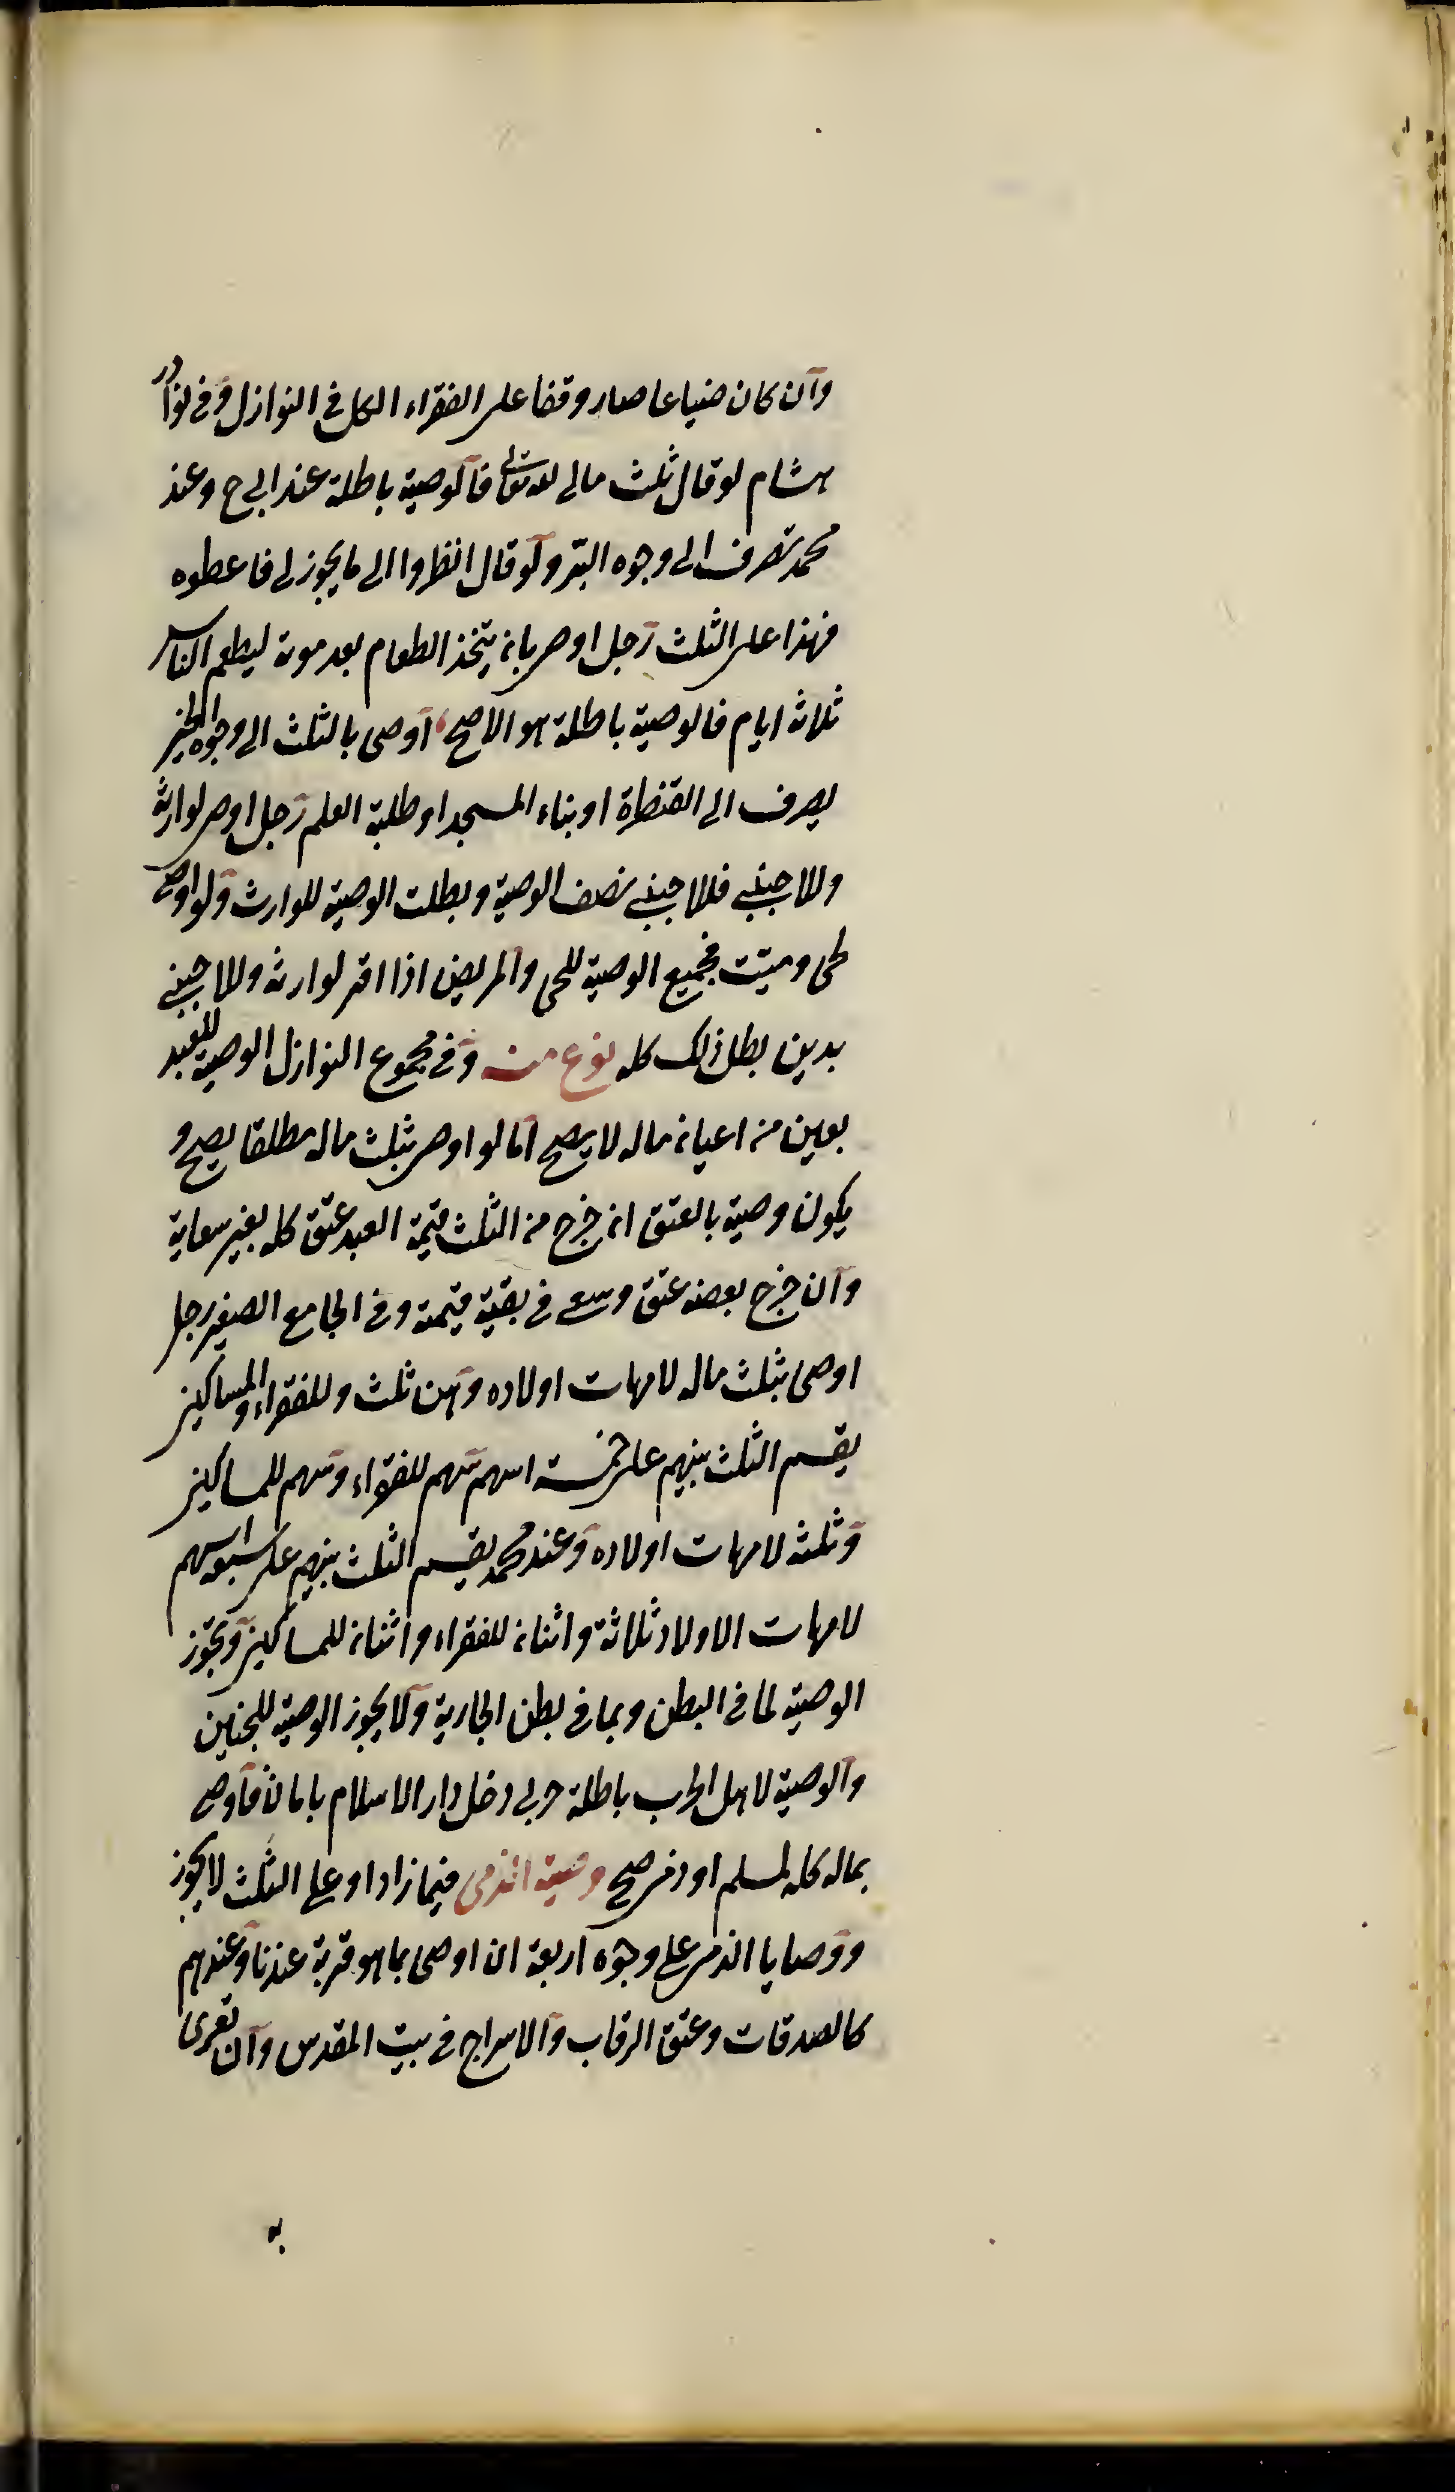 وان كان ضياعا صار وقفا على الفقراء الكل في النوازل وفي نوادر
هشام لو قال ثلث مالي لله تعالى فالوصية باطلة عند ابي ح وعند
محمد تصرف الى وجوه البر ولو قال انظروا الى ما يجوز لي فاعطوه
فهذا على الثلث رجل اوصى بان يتخذ الطعام بعد موته ليطعم الناس
ثلاثة ايام فالوصية باطلة هو الاصح اوصى بالثلث الى وجوه الخير
يصرف الى القنطرة او بناء المسجد او طلبة العلم رجل اوصى لوارثه
وللاجنبي فللاجنبي نصف الوصية وبطلت الوصية للوارث ولو اوصى
لحي وميت فجميع الوصية للحي والمريض اذا اقر لوارثه وللاجنبي
بدين بطل ذلك كله نوع منه وفي مجموع النوازل الوصية للعبد
بعين من اعيان ماله لا يصح اما لو اوصى بثلث ماله مطلقا يصح و
يكون وصية بالعتق ان خرج من الثلث قيمة العبد عتق كله بغير سعاية
وان خرج بعضه عتق وسعى في بقية قيمته وفي الجامع الصغير رجل
اوصى بثلث ماله لامهات اولاده وهن ثلث وللفقراء والمساكين
يقسم الثلث بينهم على خمسة اسهم سهم للفقراء وسهم للمساكين
وثلثة لامهات اولاده وعند محمد يقسم الثلث بينهم على سبعة اسهم
لامهات الاولاد ثلاثة واثنان للفقراء واثنان للمساكين وتجوز
الوصية لما في البطن وبما في بطن الجارية ولا يجوز الوصية للجنين
والوصية لاهل الحرب باطلة حربي دخل دار الاسلام بامان فاوصى
بماله كله لمسلم او ذمي صح وصية الذمي فيما زاد او على الثلث لا يجوز
ووصايا الذمي على وجوه اربعة ان اوصى بما هو قربة عندنا وعندهم
كالصدقات وعتق الرقاب والاسراج في بيت المقدس وان تغزى
به